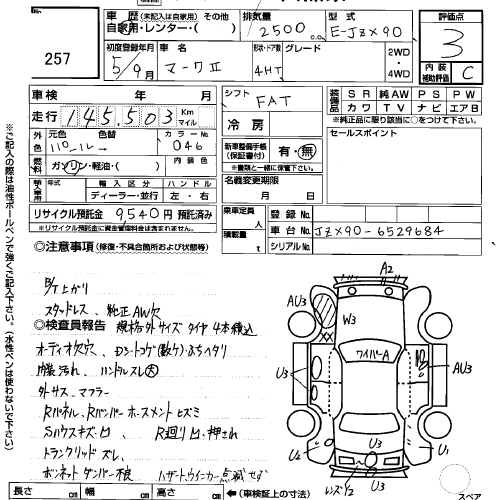 257
車歴 (未記入は自家用) その他
自家用・レンター・( )
排気量 2500 c.c.
型式 E-JZX90
評価点 3
内装補助評価 C
初度登録年月 5/9月
車名 マークII
形状・ドア数 4HT
グレード
2WD・4WD
車検 年 月
走行 145,503 Km マイル
シフト FAT
装備品 SR 純AW PS PW
カワ TV ナビ エアB
※純正品に限り該当に○をつけて下さい。
外色 元色 色替
パール
カラーNo. 046
冷房
セールスポイント
燃料 ガソリン・軽油・( )
内装色
新車整備手帳(保証書付) 有・無
※書類と一緒に保管して下さい。
年式 輸入区分 ハンドル
ディーラー・並行 左・右
名義変更期限 月 日
リサイクル預託金 9540円 預託済み
※リサイクル預託金に資金管理料金は含まれません。
乗車定員 人
積載量 t
登録No.
車台No. JZX90-6529684
シリアルNo.
◎注意事項 (修復・不具合箇所および状態等)
B/T上がり
スタッドレス、純正AW欠
◎検査員報告 規格外サイズタイヤ4本積込
オーディオ欠穴
内装汚れ ハンドルスレ大
外サス、マフラー
Rパネル、Rバンパーホースメントヒズミ
Sハウスキズ凹 R廻り凹・押され
トランクリッドズレ
ボンネットダンパー不良 ハザードウインカー点滅せず
A2
AU3
W3
XX
ワイパーA
U3
AU3
U3
U2
U3
U1
U3
レンズY2
スペア
長さ cm 幅 cm 高さ cm ← (車検証上の寸法)
※ご記入の際は油性ボールペンで強くご記入下さい。(水性ペンは使わないで下さい)